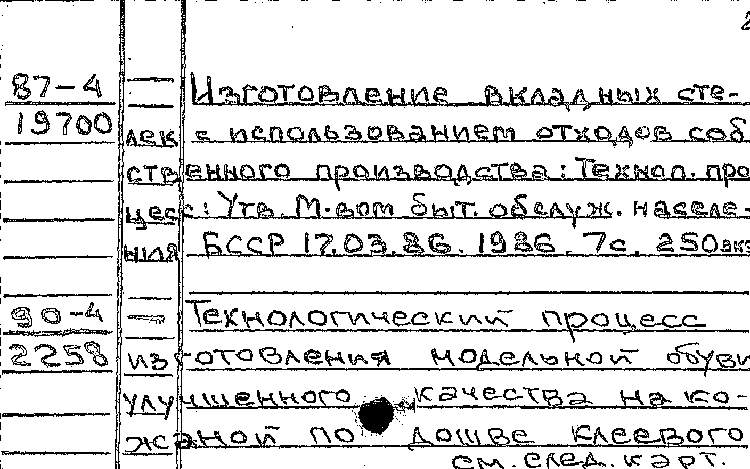 87-4 — Изготовление вкладных сте-
19700 лек с использованием отходов соб
ственного производства: Технол. про
цесс: Утв. М-вом быт. обслуж. населе-
ния БССР 17.03.86. 1986. 7с. 250экз
90-4 — Технологический процесс
2258 изготовления модельной обуви
улучшенного качества на ко-
жаной подошве клеевого
см. след. карт.